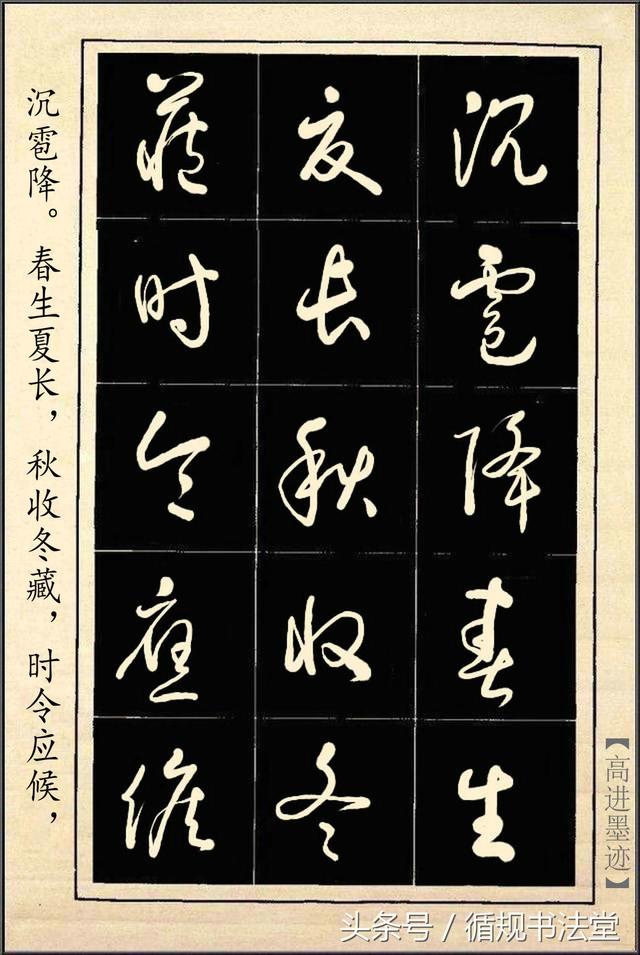 沉雹降春生
夏长秋收冬
藏时令应候
沉雹降。春生夏长，秋收冬藏，时令应候，
【高进墨迹】
头条号／循规书法堂